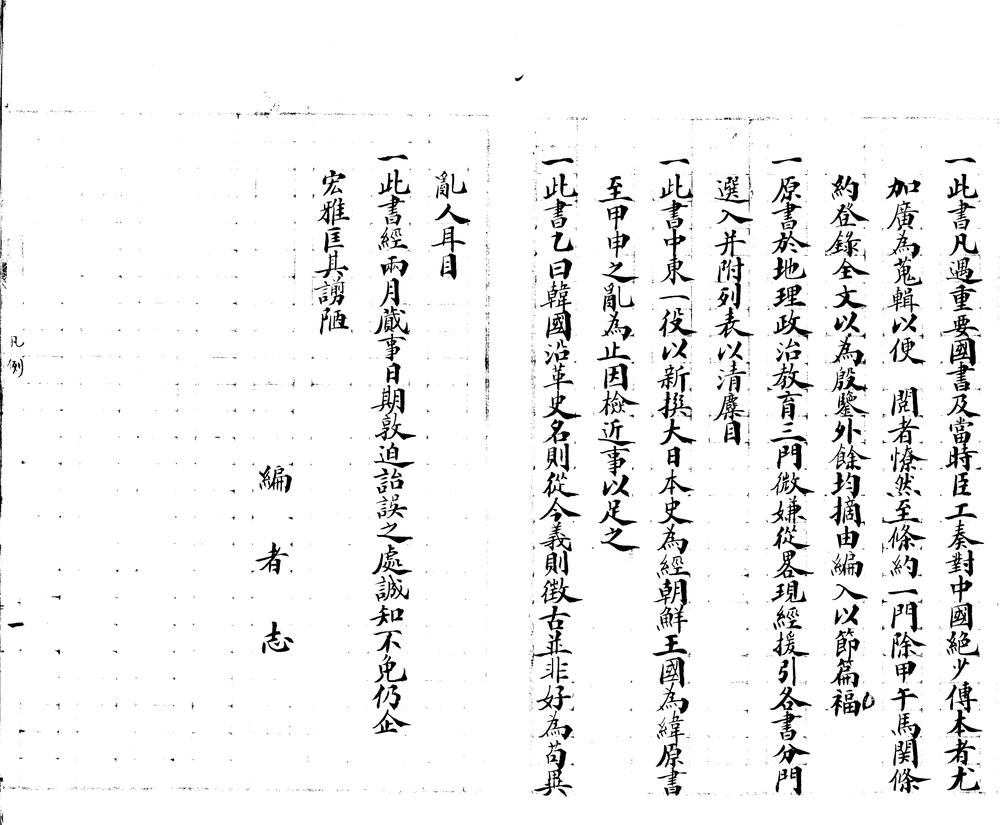 一此書凡遇重要國書及當時臣工奏對中國絕少傳本者尤
加廣為蒐輯以便　閱者憭然至條約一門除甲午馬関條
約登錄全文以為殷鑒外餘均摘由編入以節篇福
一原書於地理政治教育三門微嫌從畧現經援引各書分門
選入并附列表以清麋目
一此書中東一役以新撰大日本史為經朝鮮王國為緯原書
至甲申之亂為止因檢近事以足之
一此書乙曰韓國沿革史名則從今義則徴古並非好為苟異
亂人耳目
一此書經兩月蕆事日期敦迫詒誤之處誠知不免仍企
宏雅匡其謭陋
編者志
凡例
一